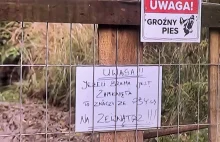 UWAGA!
GROŹNY
PIES
UWAGA!!!
JEŻELI BRAMA JEST
ZAMKNIĘTA
TO ZNACZY ŻE PSY SĄ
NA ZEWNĄTRZ!!!